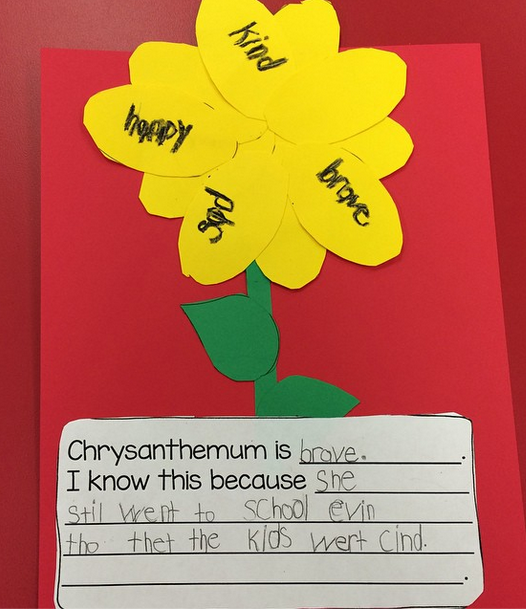 Kind
happy
brave
sad
Chrysanthemum is brave. .
I know this because She
stil went to school evin
tho thet the kids wert cind.
.